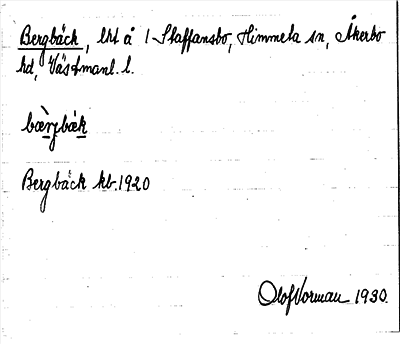 Bergbäck, lht å 1 Staffansbo, Himmeta sn, Åkerbo
hd, Västmanl. l.
bær̀jbäk
Bergbäck kb. 1920
Olof Vorman 1930.